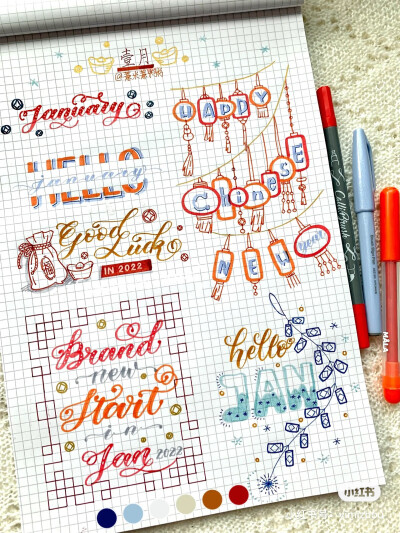 壹月
January
HELLO
January
Good
Luck
IN 2022
HAPPY
CHINESE
NEW
year
Brand
new
Start
in
Jan 2022
hello
JAN
CalliBrush
MALA
小红书